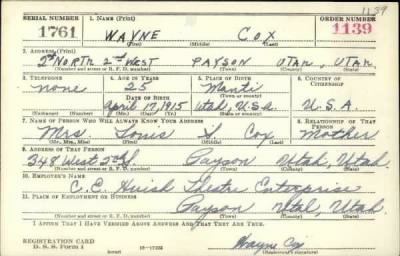 1139
SERIAL NUMBER 1. NAME (Print) ORDER NUMBER
1761 WAYNE COX 1139
(First) (Middle) (Last)
2. ADDRESS (Print)
2nd NORTH 2nd WEST PAYSON UTAH, UTAH.
(Number and street or R. F. D. number) (Town) (County) (State)
3. TELEPHONE 4. AGE IN YEARS 5. PLACE OF BIRTH 6. COUNTRY OF CITIZENSHIP
none 25 Manti
DATE OF BIRTH (Town or county)
April 17, 1915 Utah, U.S.A. U.S.A.
(Exchange) (Number) (Mo.) (Day) (Yr.) (State or country)
7. NAME OF PERSON WHO WILL ALWAYS KNOW YOUR ADDRESS 8. RELATIONSHIP OF THAT PERSON
Mrs. Cox Mother
(Mr., Mrs., Miss) (First) (Middle) (Last)
9. ADDRESS OF THAT PERSON
348 West Payson Utah, Utah.
(Number and street or R. F. D. number) (Town) (County) (State)
10. EMPLOYER'S NAME
C. E. Huish Theatre Enterprise
11. PLACE OF EMPLOYMENT OR BUSINESS
Payson Utah, Utah.
(Number and street or R. F. D. number) (Town) (County) (State)
I AFFIRM THAT I HAVE VERIFIED ABOVE ANSWERS AND THAT THEY ARE TRUE.
REGISTRATION CARD Wayne Cox
D. S. S. Form 1 (Registrant's signature)